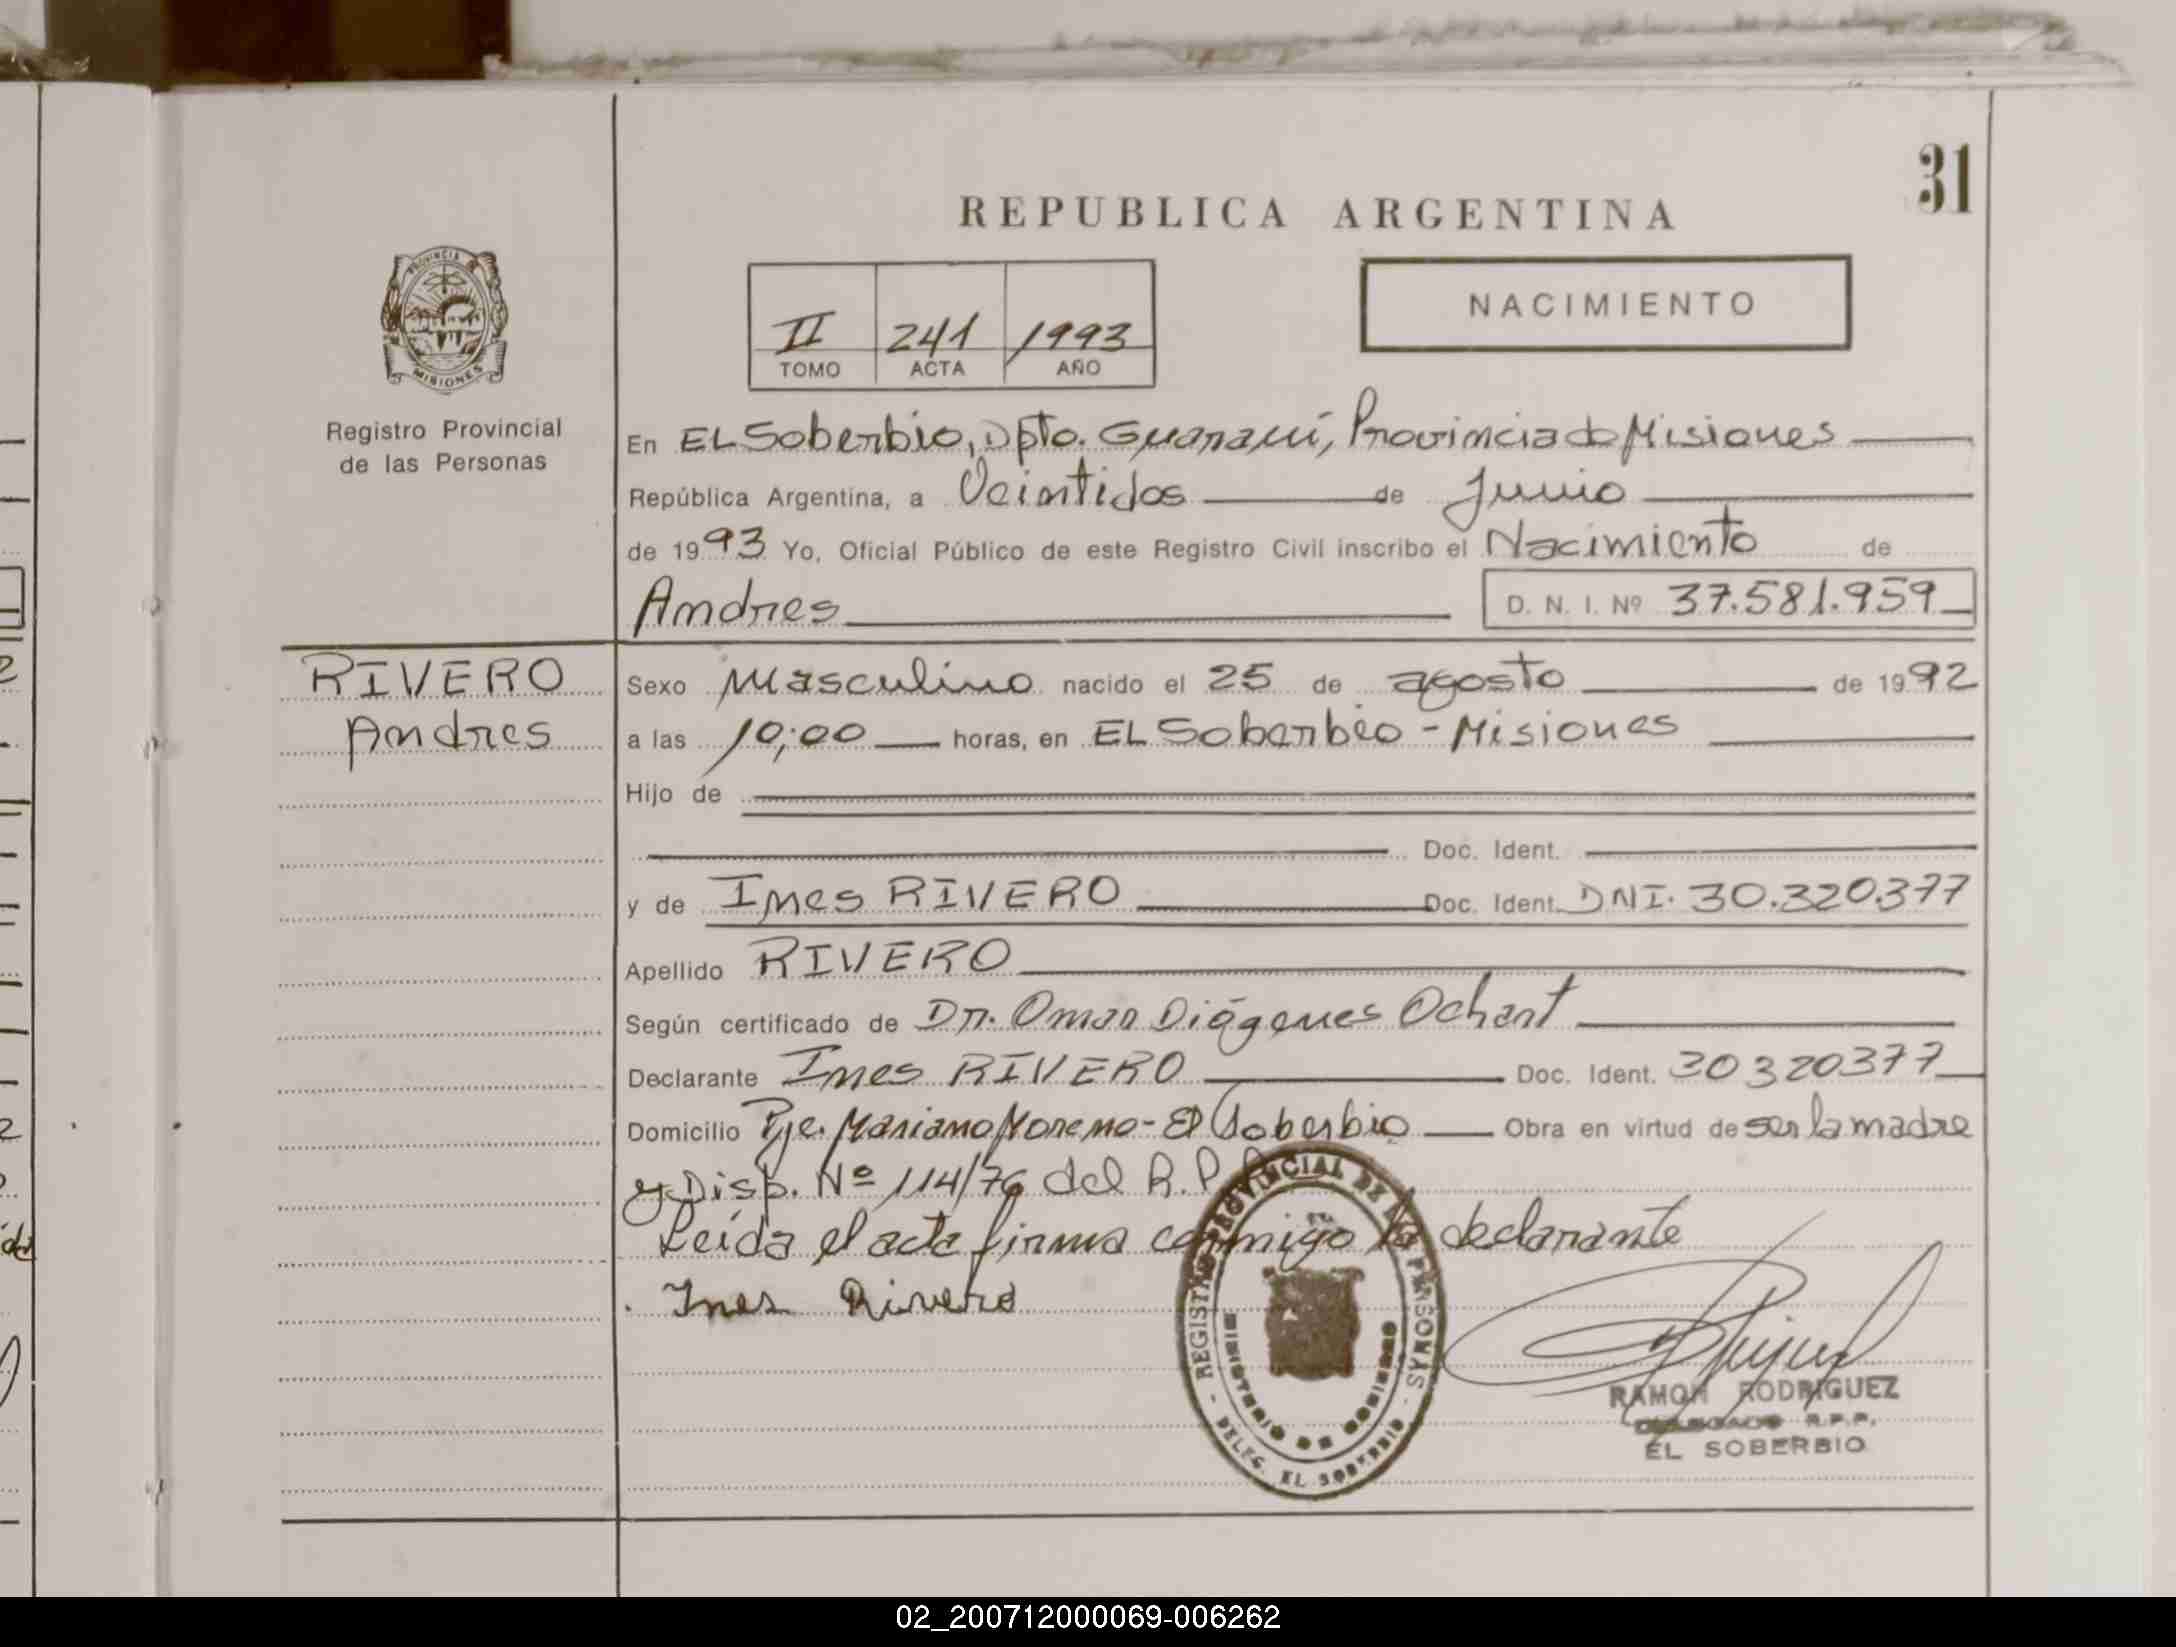 31
REPUBLICA ARGENTINA
PROVINCIA DE
MISIONES
II 241 1993
TOMO ACTA AÑO
NACIMIENTO
Registro Provincial
de las Personas
En EL Soberbio, Dpto. Guaraní, Provincia de Misiones
República Argentina, a Veintidos de Junio
de 1993 Yo, Oficial Público de este Registro Civil inscribo el Nacimiento de
Andres D. N. I. Nº 37.581.959
RIVERO
Andres
Sexo Masculino nacido el 25 de agosto de 1992
a las 10;00 horas, en EL Soberbio - Misiones
Hijo de
Doc. Ident.
y de Ines RIVERO Doc. Ident. DNI. 30.320.377
Apellido RIVERO
Según certificado de Dr. Omar Diógenes Ochart
Declarante Ines RIVERO Doc. Ident. 30320377
Domicilio Pje. Mariano Moreno - El Soberbio Obra en virtud de ser la madre
y Disp. Nº 114/76 del R.P.
Leída el acta firma conmigo la declarante
Ines Rivero
REGISTRO PROVINCIAL DE LAS PERSONAS
MINISTERIO DE GOBIERNO
DELEG. EL SOBERBIO
RAMON RODRIGUEZ
DELEGADO R.P.P.
EL SOBERBIO
02_200712000069-006262